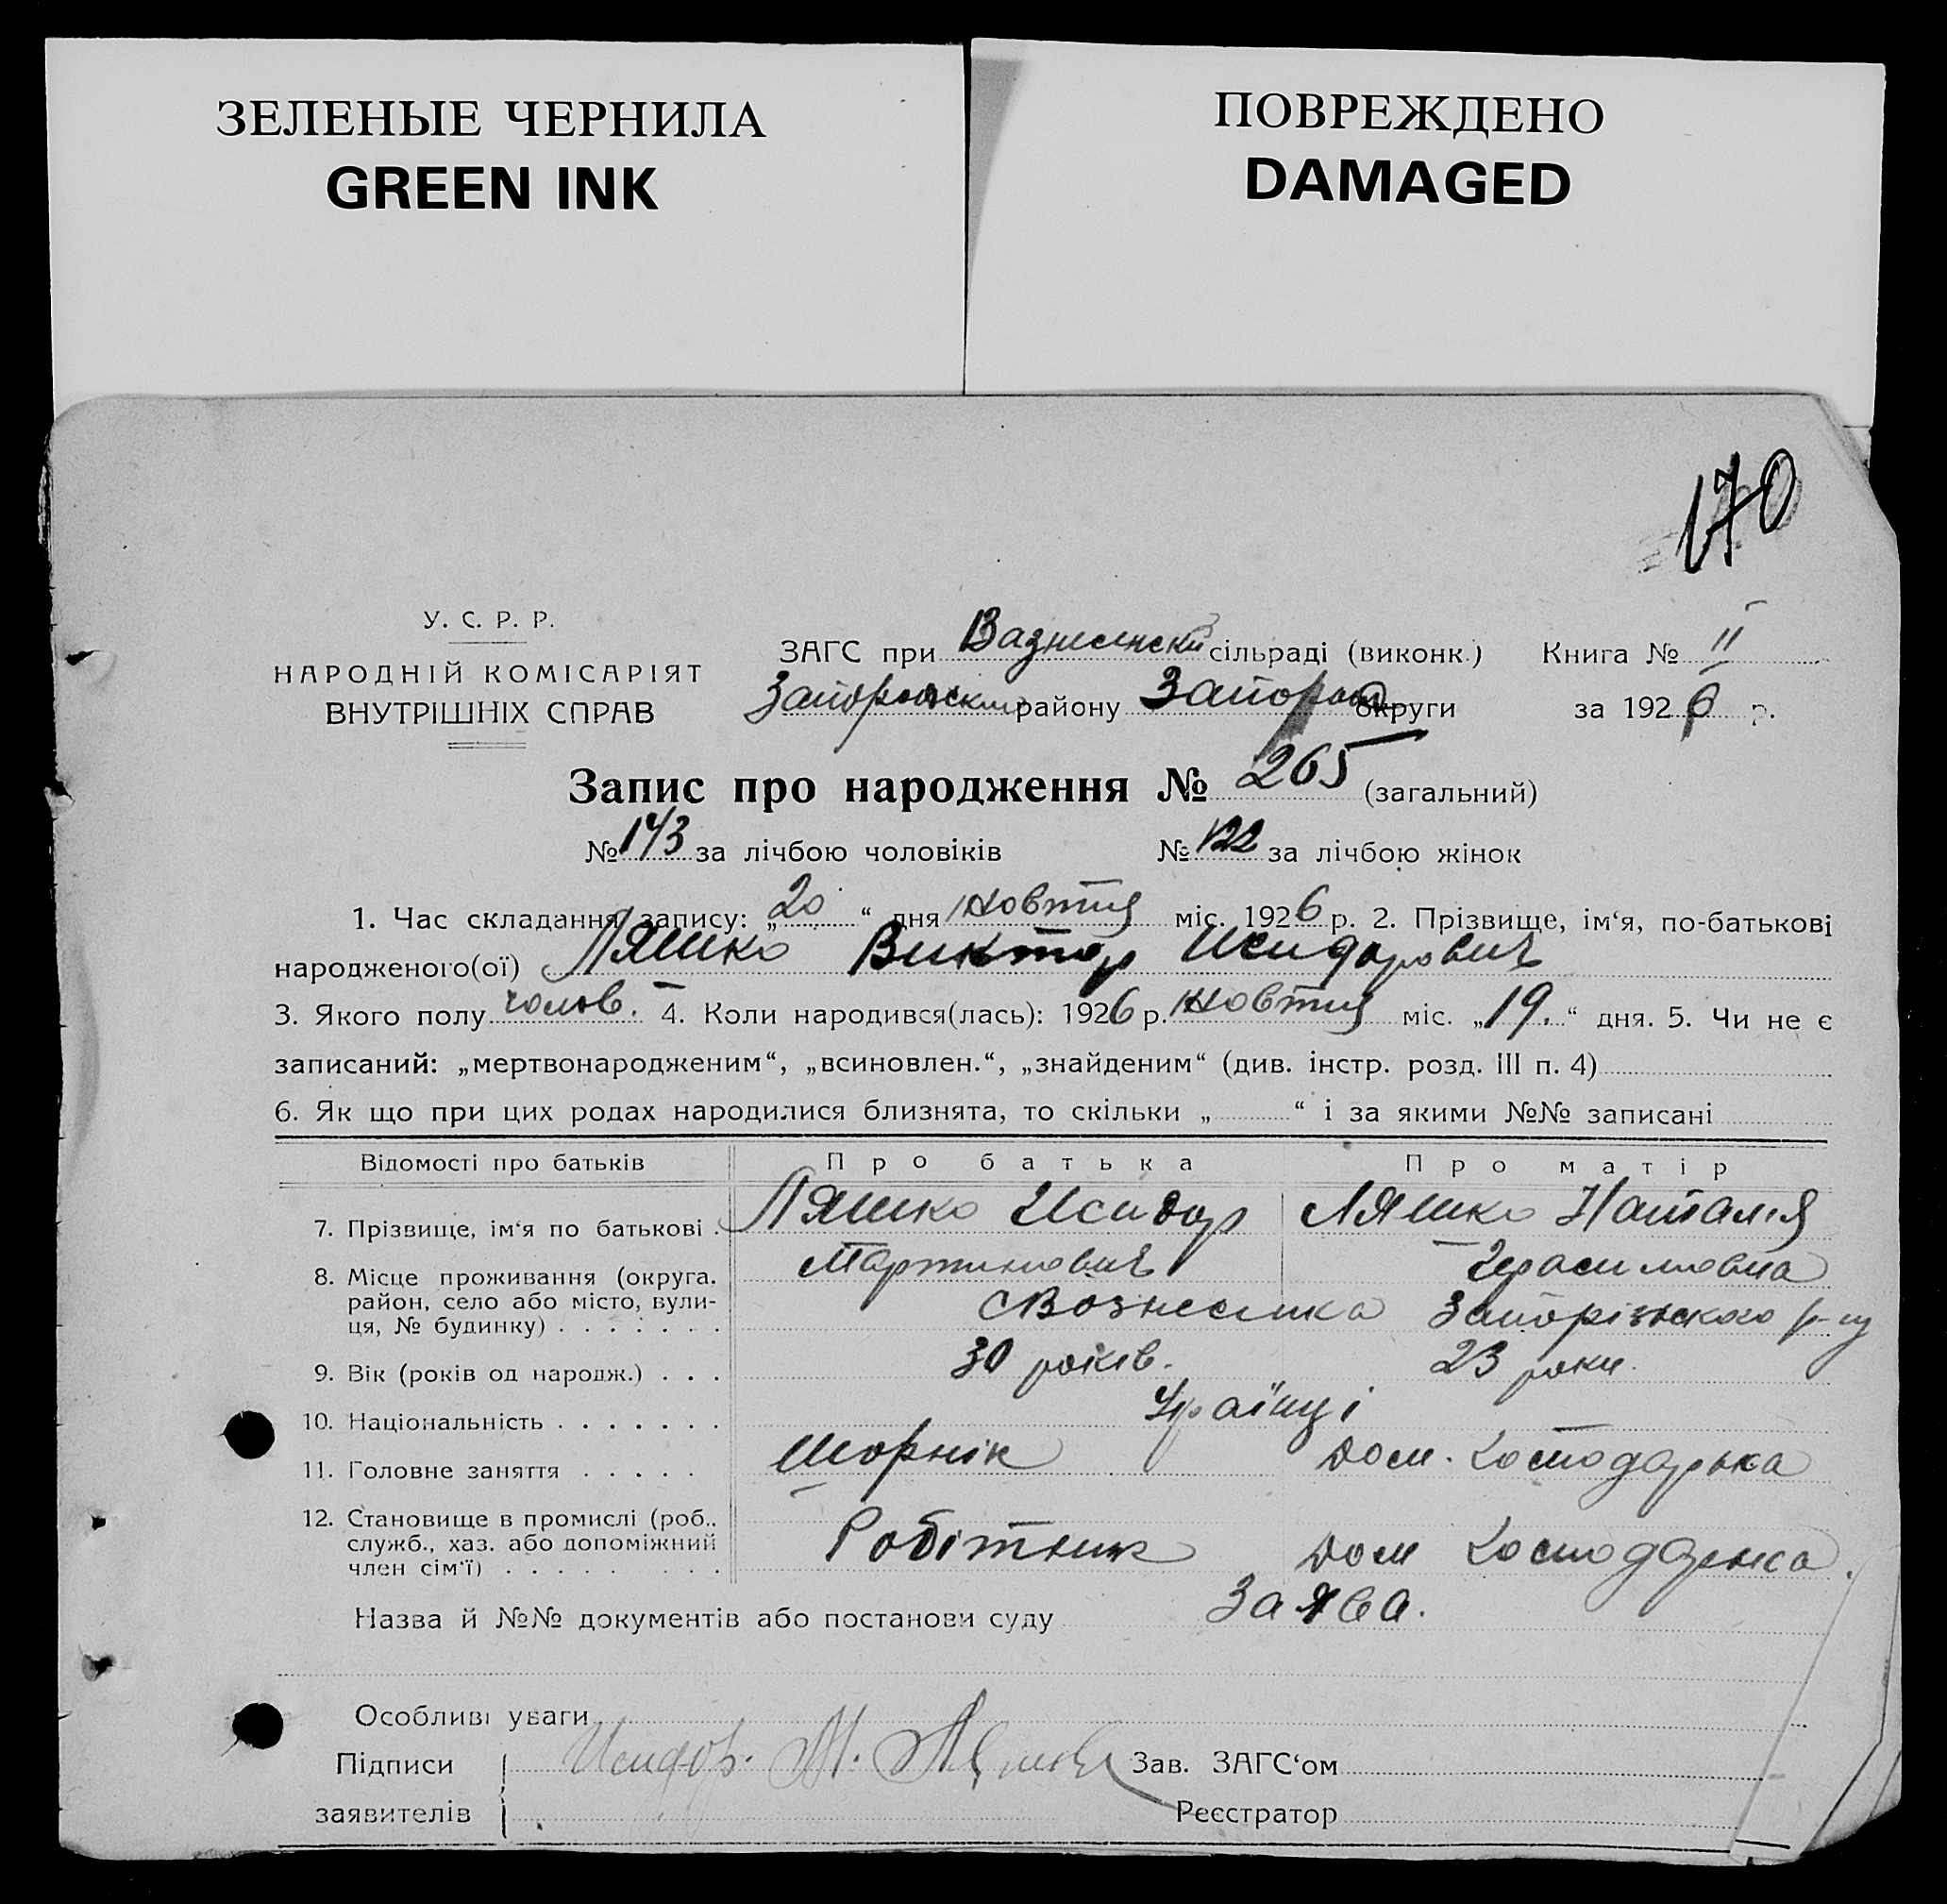 ЗЕЛЕНЫЕ ЧЕРНИЛА
GREEN INK
ПОВРЕЖДЕНО
DAMAGED
170
У. С. Р. Р.
НАРОДНІЙ КОМІСАРІЯТ
ВНУТРІШНІХ СПРАВ
ЗАГС при Вазнесенскій сільраді (виконк.) Книга № II
району Запор округи за 1926 р.
Запис про народження № 265 (загальний)
№ 143 за лічбою чоловіків № 122 за лічбою жінок
1. Час складання запису: „20“ дня жовтня міс. 1926 р. 2. Прізвище, ім‘я, по-батькові
народженого(ої) Ляшко Виктор Исидорович
3. Якого полу чолов. 4. Коли народився(лась): 1926 р. жовтня міс. „19.“ дня. 5. Чи не є
записаний: „мертвонародженим“, „всиновлен.“, „знайденим“ (див. інстр. розд. III п. 4)
6. Як що при цих родах народилися близнята, то скільки „ “ і за якими №№ записані
Відомості про батьків Про батька Про матір
7. Прізвище, ім‘я по батькові . Ляшко Исидор Ляшко Наталія
Мартинович Герасимовна
8. Місце проживання (округа. район, село або місто, вули- ця, № будинку) . . . . . . . с Вознесенка Запорізького р-ну
9. Вік (років од народж.) . . . 30 років. 23 роки.
10. Національність . . . . . . . Українці
11. Головне заняття . . . . . Шорнік Дом. Господарька
12. Становище в промислі (роб.. служб., хаз. або допоміжний член сім‘ї) . . . . . . . . . Робітник Дом Господарька.
Назва й №№ документів або постанови суду Заява.
Особливі уваги
Підписи Исидор. М. Ляшко Зав. ЗАГС‘ом
заявителів Реєстратор